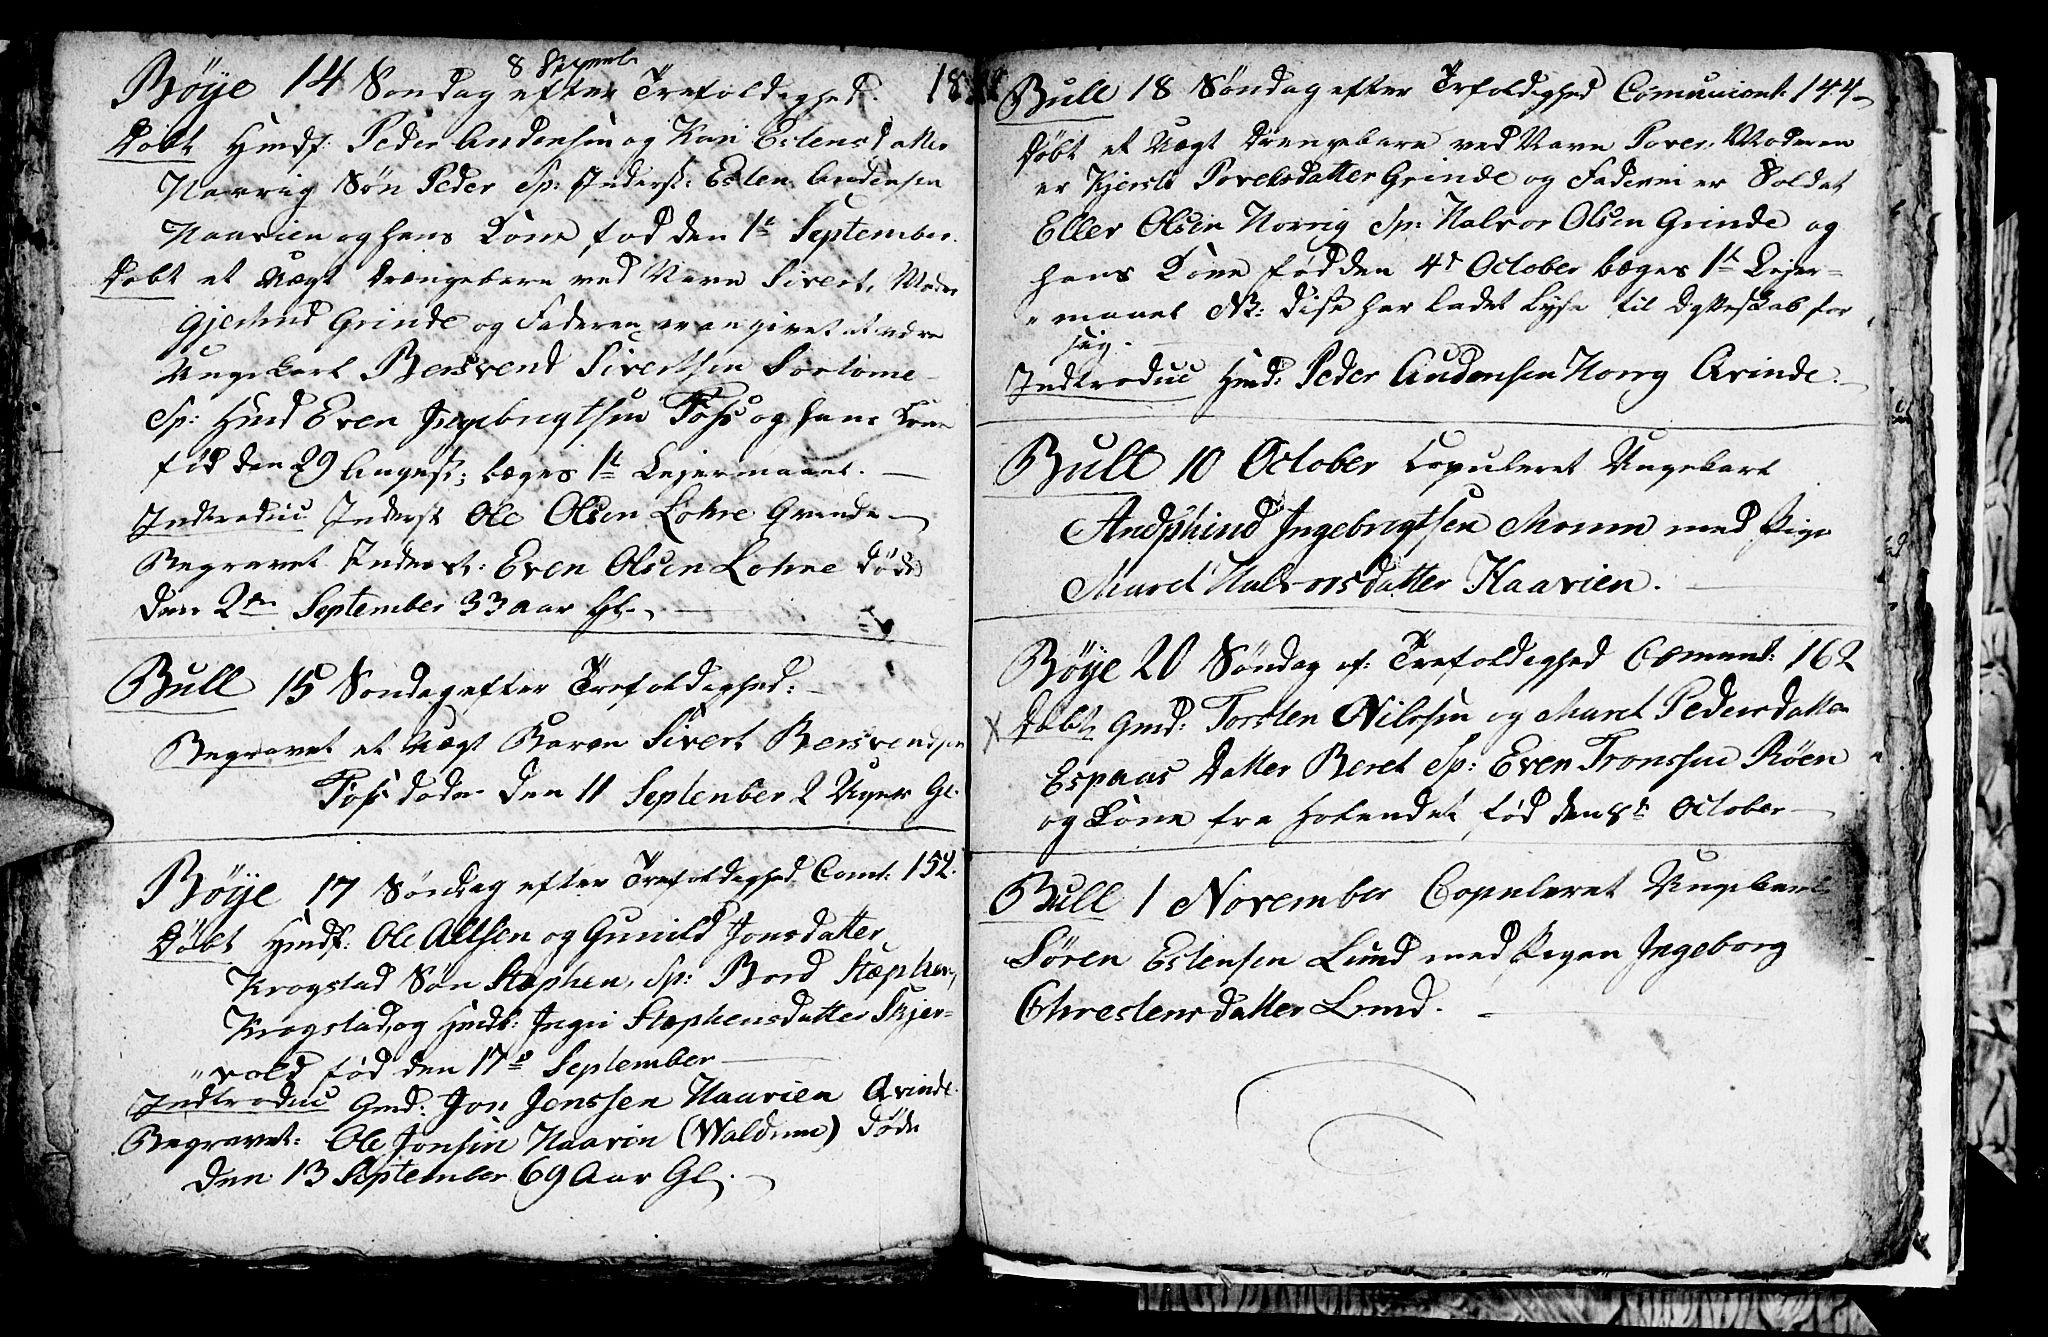 8 Septemb:
Böye 14 Søndag efter Trefoldighed. 18
Døbt Hmdf: Peder Andersen og Kari Estensdatter
Norrig Søn Peder Sp: Inderst: Esten Andersen
Haarien og hans Kone, fød den 1te September.
Døbt et Uægt Drengebarn ved Navn Sivert, Moder
Gjertrud Grinde og Faderen er angivet at være
Ungekarl Bersvend Sivertsen
Sp: Hmd Even Ingebrigtsen Foss og hans Kone
fød den 29 August; beges 1te Lejermaael.
Indtroduc Inderst Ole Olsen Lohre Qvinde
Begravet Inderst: Even Olsen Lohre døde
den 2den September 33 aar Gl.
Bull 15 Søndag efter Trefoldighed:
Begravet et Uægt Barn Sivert Bersvendsen
Foss døde den 11 September 2 Uger Gl.
Böye 17 Søndag efter Trefoldighed Comt: 152.
Døbt Hmdf: Ole Allsen og Gunild Jonsdatter
Krogstad Søn Stephen, Sp: Bord Stephens:
Krogstad, og Hmdf: Ingri Stephensdatter Skjer=
"vold fød den 17de September
Indtroduc Gmd: Jon Jonssen Haarien Qvinde.
Begravet: Ole Jonsen Haarien (Waldum) døde
den 13 September 69 Aar Gl.
Bull 18 Søndag efter Trfoldighed Comunicant: 144
Døbt et Uægt Drengebarn ved Navn Povel, Moderen
er Kjersti Povelsdatter Grinde og Faderen er Soldat
Ellev Olsen Norrig Sp: Halvor Olsen Grinde og
hans Kone fød den 4de October beges 1te Lejer=
"maael NB: disse har ladet lyse til Ægteskab for
sig.
Indtroduc Hmd: Peder Andersen Norrig Qvinde.
Bull 10 October Copuleret Ungekarl
Andphind Ingebrigtsen Moum med Pige
Maret Halvorsdatter Haarien.
Böye 20 Søndag ef: Trefoldighed Comunt: 162
X Døbt Gmd: Torsten Nilssen og Maret Pedersdatter
Espaas Datter Beret Sp: Even Tronssen Röen
og Kone fra Hofendet, fød den 8de October
Bull 1 November Copuleret Ungekarl
Søren Estensen Lund med Pigen Ingeborg
Chrestensdatter Lund.